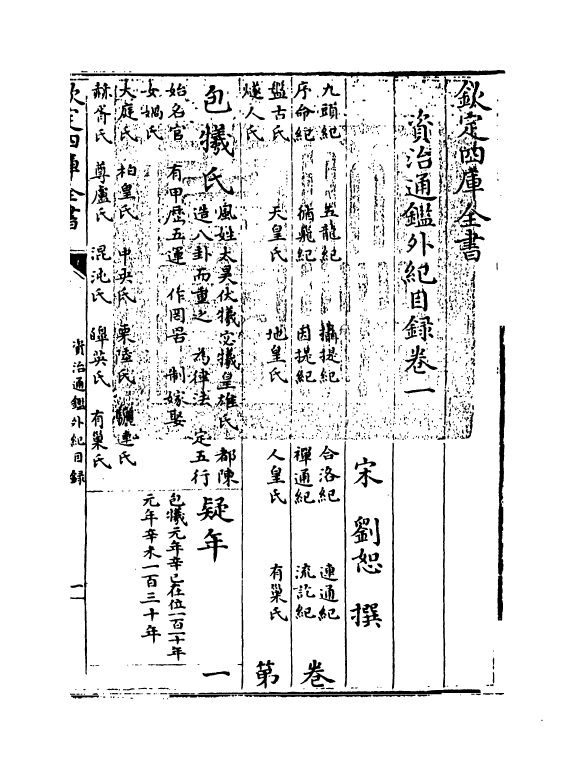 欽定四庫全書
資治通鑑外紀目録卷一
宋 劉恕 撰
九頭紀 五龍紀 攝提紀 合洛紀 連通紀
序命紀 循蜚紀 因提紀 禪通紀 流訖紀
盤古氏 天皇氏 地皇氏 人皇氏 有巢氏
燧人氏
卷第一
包犧氏 風姓太昊伏犧宓犧皇雄氏 都陳
造八卦而重之 為律法 定五行
始名官 有甲歴五運 作罔罟 制嫁娶
疑年
包犧元年辛巳在位一百一十年
元年辛未一百三十年
女媧氏
大庭氏 柏皇氏 中央氏 栗陸氏 驪連氏
赫胥氏 尊盧氏 混沌氏 皥英氏 有巢氏
欽定四庫全書
資治通鑑外紀目録
一